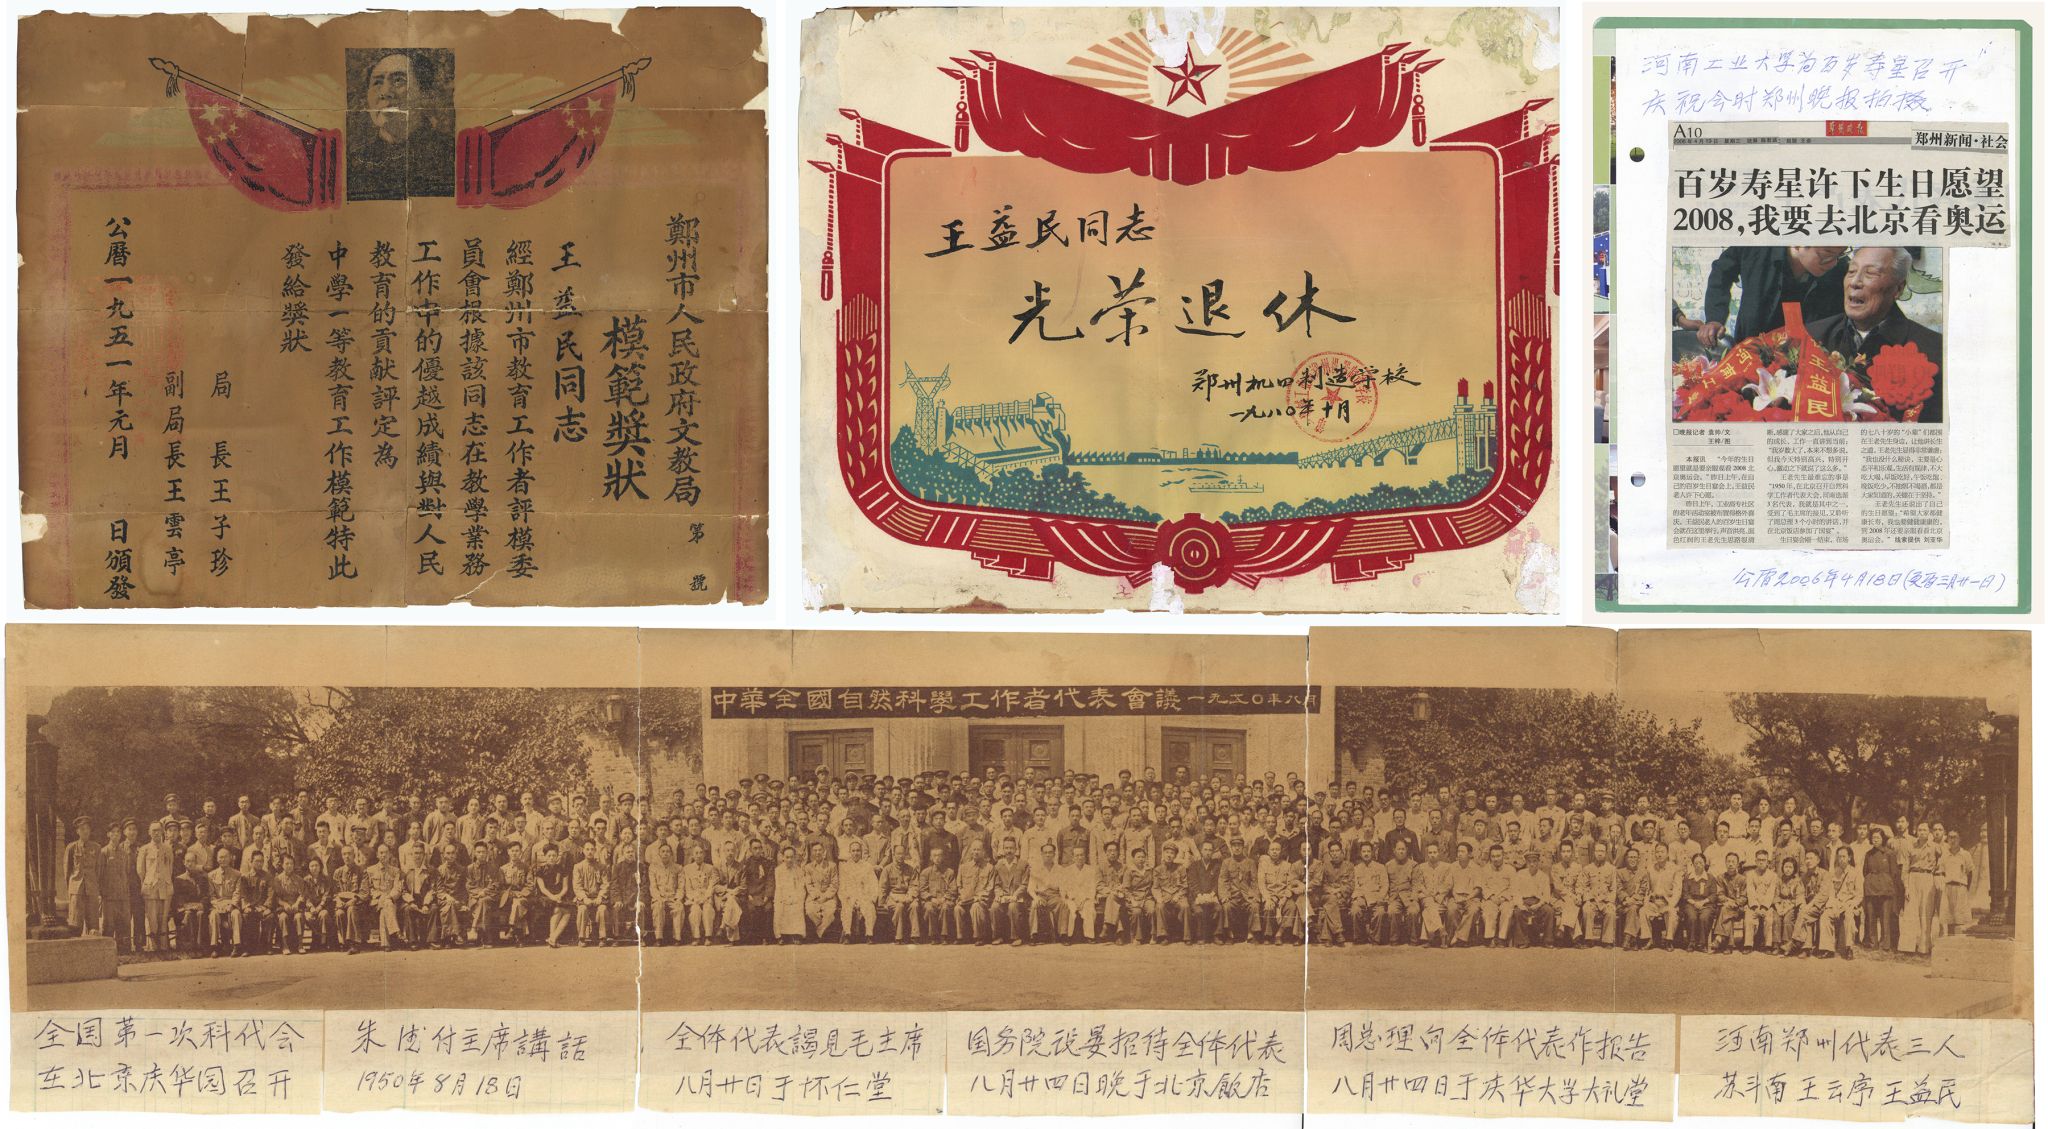 鄭州市人民政府文教局
模範獎狀
第 號
王益民同志
經鄭州市教育工作者評模委
員會根據該同志在教學業務
工作中的優越成績與對人民
教育的貢献評定為
中學一等教育工作模範特此
發給獎狀
局 長 王子珍
副局長 王雲亭
公曆一九五一年元月 日頒發
王益民同志
光荣退休
郑州机四制造学校
一九八〇年十月
河南工业大学为百岁寿星召开
庆祝会时郑州晚报拍摄
A10
郑州晚报
郑州新闻·社会
百岁寿星许下生日愿望
2008,我要去北京看奥运
王益民
□晚报记者 袁帅/文
王梓/图
公历2006年4月18日(农历三月廿一日)
中華全國自然科學工作者代表會議 一九五〇年八月
全国第一次科代会
在北京庆华园召开
朱德付主席講話
1950年8月18日
全体代表謁見毛主席
八月廿日于怀仁堂
国务院设宴招待全体代表
八月廿四日晚于北京飯店
周总理向全体代表作报告
八月廿四日于庆华大学大礼堂
河南郑州代表三人
苏斗南 王云亭 王益民